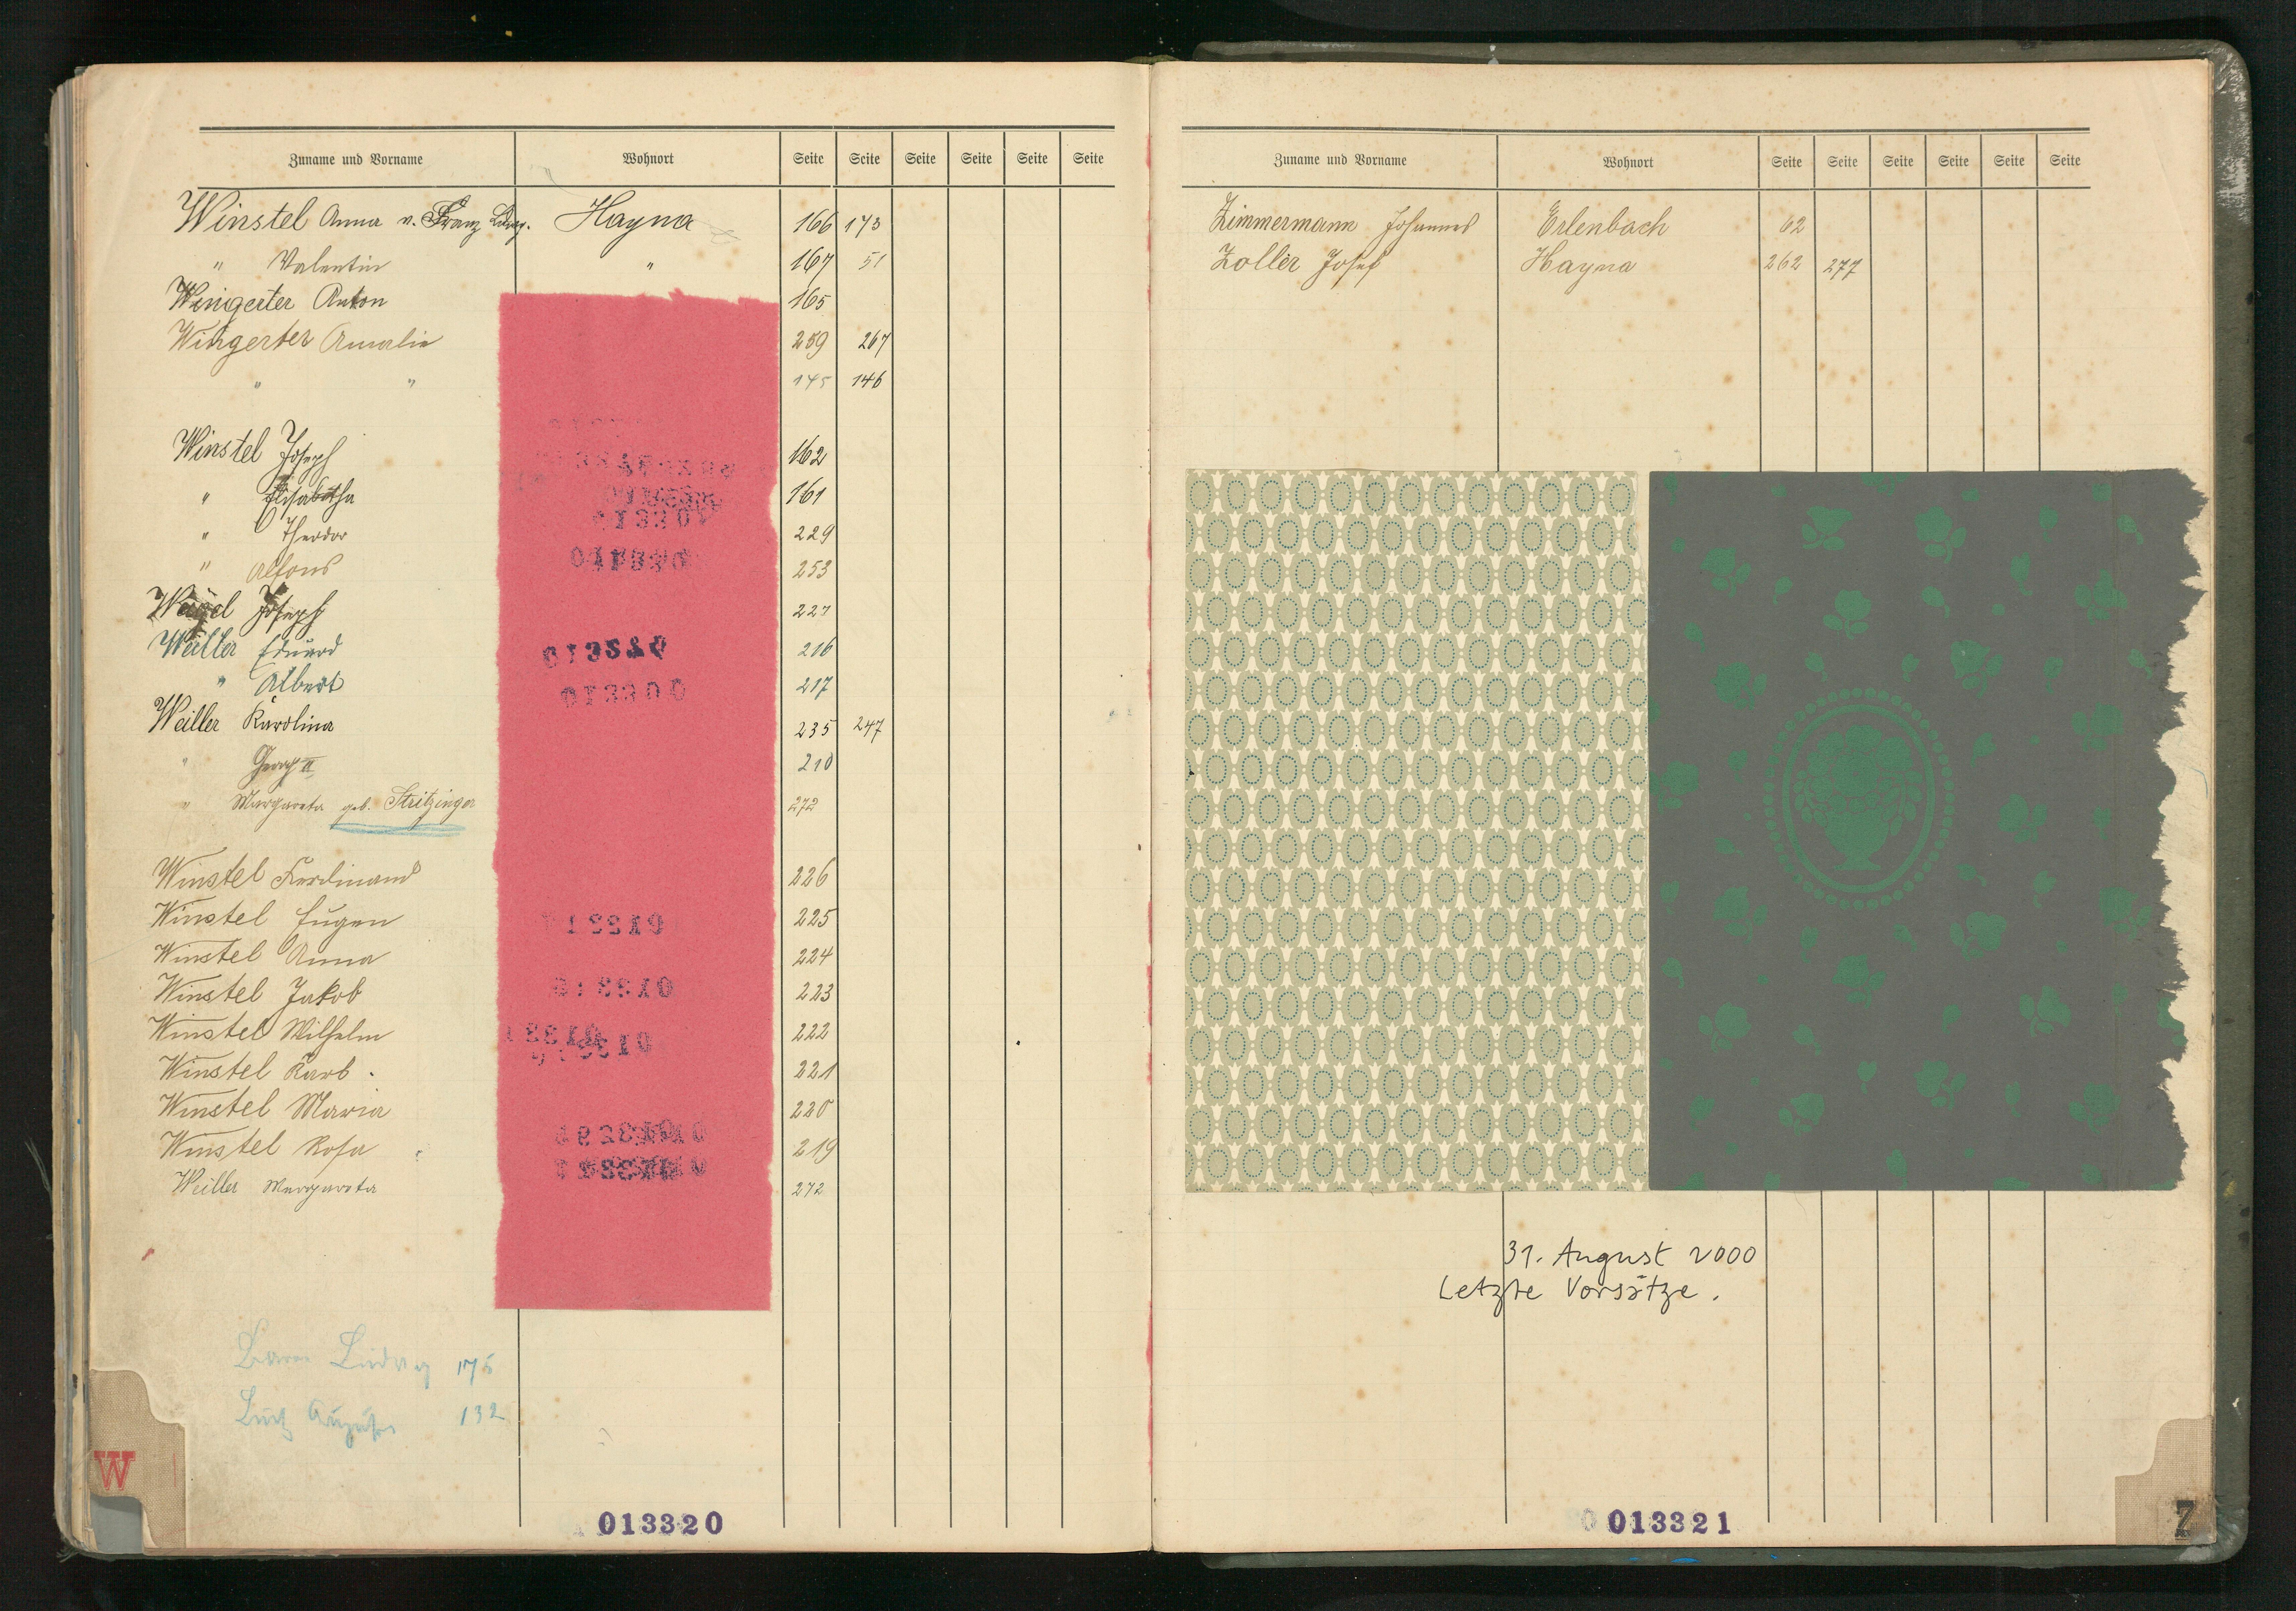 Zuname und Vorname Wohnort Seite Seite Seite Seite Seite Seite
Winstel Anna u. Franz Hayna 166 173
" Valentin " 167 51
Wingerter Anton 165
Wingerter Amalie 259 267
" " 145 146
Winstel Joseph 162
" Elisabetha 161
" Theodor 229
" Alfons 253
Joseph 227
Weiller Eduard 216
" Albert 217
Weiller Karolina 235 247
" Georg II 210
" Margareta geb. Stritzinger 272
Winstel Ferdinand 226
Winstel Eugen 225
Winstel Anna 224
Winstel Jakob 223
Winstel Wilhelm 222
Winstel 221
Winstel Maria 220
Winstel Rosa 219
Weiller Margareta 272
013300
Ludwig 175
132
W
013320
Zuname und Vorname Wohnort Seite Seite Seite Seite Seite Seite
Zimmermann Johannes Erlenbach 62
Zoller Josef Hayna 262 277
31. August 2000
Letzte Vorsätze.
Z
013321